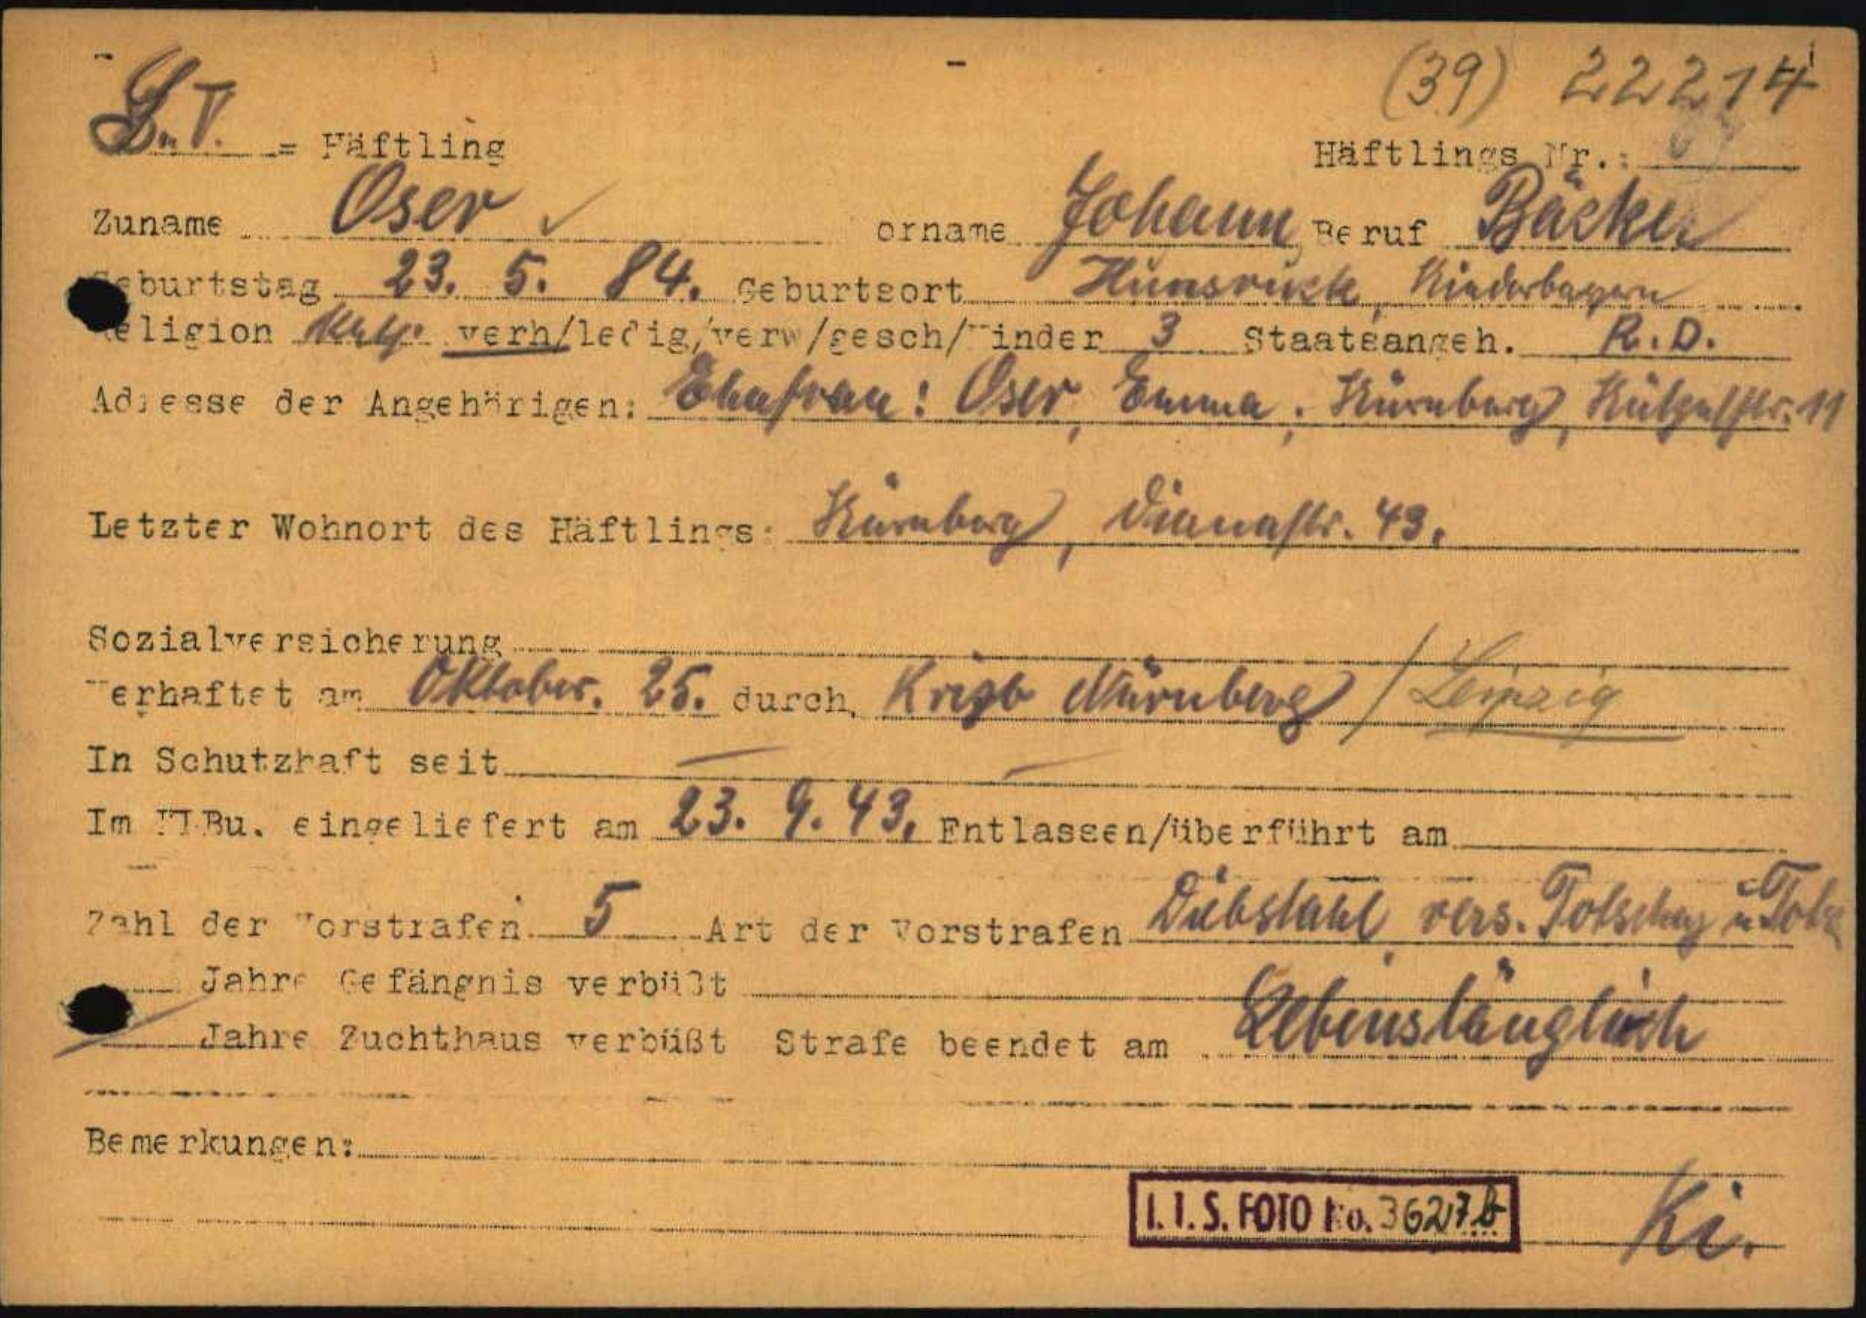 (39) 22214
S.V. = Häftling Häftlings Nr.:
Zuname Oser orname Johann Beruf Bäcker
eburtstag 23. 5. 84. Geburtsort Hunsruck, Niederbayern
eligion kath. verh/ledig/verw/gesch/Kinder 3 Staatsangeh. R.D.
Adresse der Angehörigen: Ehefrau: Oser, Emma, Nürnberg, 11
Letzter Wohnort des Häftlings: Nürnberg, Dianastr. 43.
Sozialversicherung
Verhaftet am Oktober. 25. durch Kripo Nürnberg / Leipzig
In Schutzhaft seit
Im KLBu. eingeliefert am 23. 9. 43. Entlassen/überführt am
Zahl der Vorstrafen 5 Art der Vorstrafen Diebstahl, vers. Totschlag u.
Jahre Gefängnis verbüßt
Jahre Zuchthaus verbüßt Strafe beendet am Lebenslänglich
Bemerkungen:
I.T.S. FOTO No. 3627b
Ki.